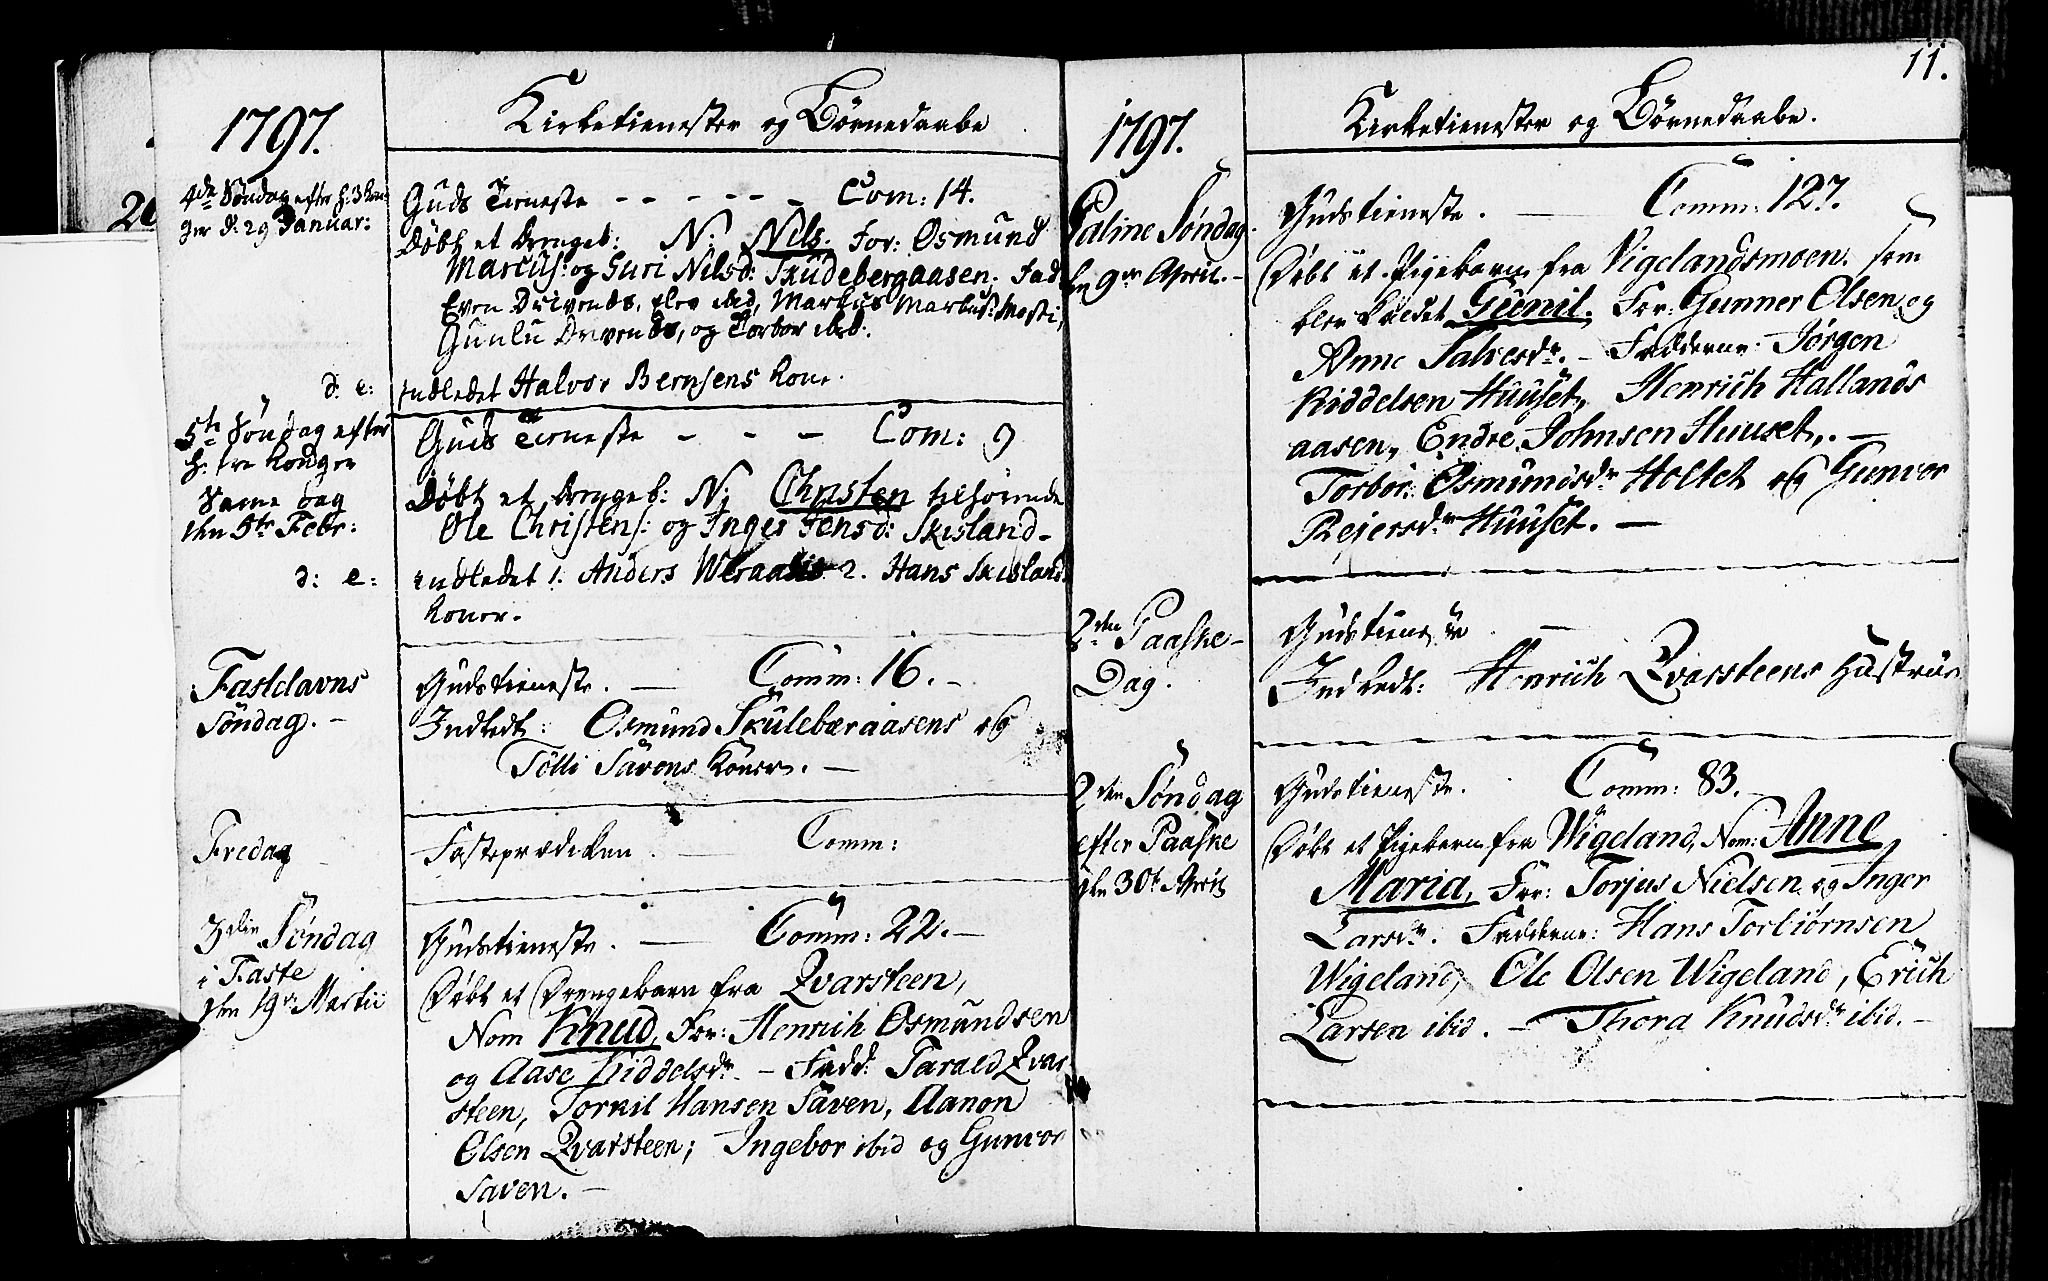 1797.
Kirketienester og Børnedaabe
4de Søndag efter H: 3 Kon
ger d: 29 Januar:
Guds Tieneste - - - - - Com: 14.
Døbt et Drengeb: N: Nils. For: Osmund
Marcus: og Guri Nilsd: Skudebergaasen. Fad
Even Drivends, Elev ibid, Markus Markus: Mosti,
Gunlu Drivends, og Torbor ibd:
d: e: indledet Halvor Bernsens Kone.
5te Søndag efter
H: tre Konger
Samme dag
den 5te Febr:
Guds Tieneste - - - Com: 9
Døbt et Drengeb: N: Christen tilhørende
Ole Christens: og Inger Jensd: Skisland -
d: e: indledet 1. Anders 2. Hans Skislands
Koner.
Fastelavns
Søndag. -
Gudstieneste. — Comm: 16. -
Indledt: Osmund Skulebæraasens og
Tolli Savens Koner. —
Fredag
Fasteprædiken. — Comm:
3die Søndag
i Faste
den 19de Martii
Gudstieneste. — Comm: 22. -
Døbt et Drengebarn fra Qvarsteen,
Nom Knud, For: Henrich Osmundsen
og Aase Kiddelsdr. - Fadd: Tarald Qvar
steen, Torkil Hansen Saven, Aanon
Olsen Qvarsteen; Ingebor ibid og Gunvor
Saven. -
11.
1797.
Kirketienester og Børnedaabe.
Palme Søndag.
den 9de April. -
Gudstieneste. — Comm: 127.
Døbt et Pigebarn fra Vigelandsmoen. som
blev kaldet Gunil. For: Gunner Olsen og
Anne Salvesdr. - Fadderne: Jørgen
Kiddelsen Huuset, Henrich Hallands
aasen, Endre Johnsen Huuset, . —
Torbor: Osmundsdr Holtet og Gunvor
Reiersdr Huuset. —
2den Paaske-
Dag.
Gudstieneste. —
Indledt: Henrich Qvarsteens Hustrue
2den Søndag
efter Paaske
den 30te April
Gudstieneste. Comm: 83. -
Døbt et Pigebarn fra Wigeland, Nom: Anne
Maria, For: Torjus Nielsen og Inger
Larsdr. Fadderne: Hans Torbiørnsen
Wigeland, Ole Olsen Wigeland, Erich
Larsen ibid. - Thora Knudsdr ibid. -